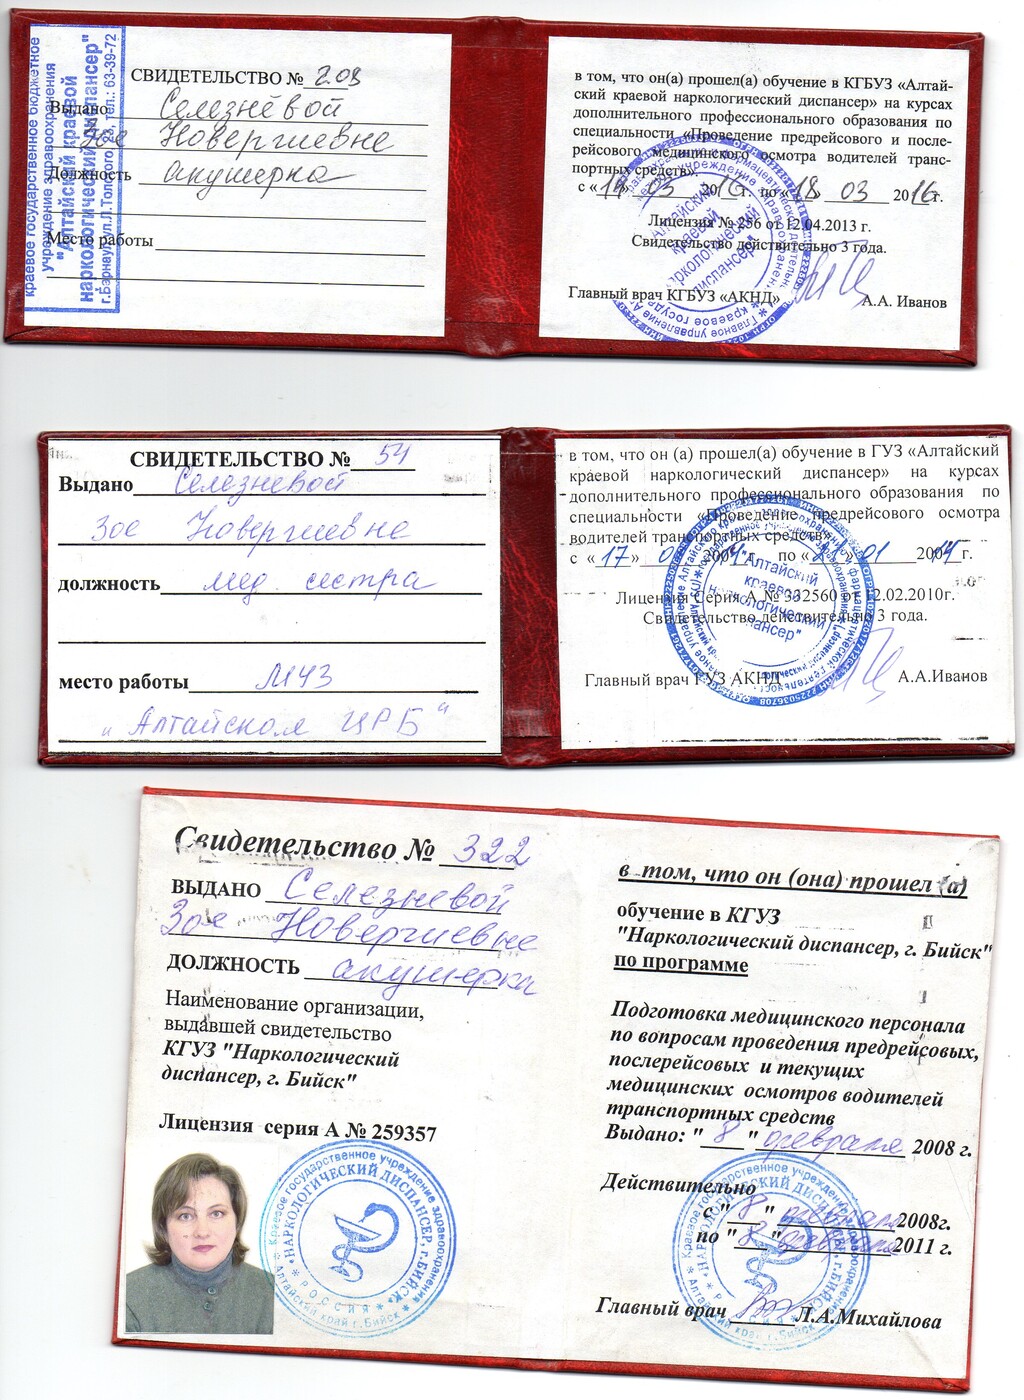 краевое государственное бюджетное
учреждение здравоохранения
"Алтайский краевой
наркологический диспансер"
г.Барнаул,ул.Л.Толстого, 23, тел.: 63-39-72
СВИДЕТЕЛЬСТВО № 203
Выдано Селезнёвой
Зое Новергиевне
Должность акушерка
Место работы
в том, что он(а) прошел(а) обучение в КГБУЗ «Алтай-
ский краевой наркологический диспансер» на курсах
дополнительного профессионального образования по
специальности «Проведение предрейсового и после-
рейсового медицинского осмотра водителей транс-
портных средств».
с « 14 » 03 2016г. по « 18 » 03 2016г.
Лицензия № 256 от 12.04.2013 г.
Свидетельство действительно 3 года.
Главный врач КГБУЗ «АКНД» А.А. Иванов
Алтайский
краевой
наркологический
диспансер"
СВИДЕТЕЛЬСТВО № 54
Выдано Селезневой
Зое Новергиевне
должность мед. сестра
место работы МУЗ
"Алтайском ЦРБ"
в том, что он (а) прошел(а) обучение в ГУЗ «Алтайский
краевой наркологический диспансер» на курсах
дополнительного профессионального образования по
специальности «Проведение предрейсового осмотра
водителей транспортных средств»
с « 17 » по 01 г.
Лицензия Серия А № 332560 от 12.02.2010г.
Свидетельство действительно 3 года.
Главный врач ГУЗ АКНД А.А.Иванов
"Алтайский
краевой
наркологический
диспансер"
Свидетельство № 322
ВЫДАНО Селезневой
Зое Новергиевне
ДОЛЖНОСТЬ акушерка
Наименование организации,
выдавшей свидетельство
КГУЗ "Наркологический
диспансер, г. Бийск"
Лицензия серия А № 259357
Краевое государственное учреждение здравоохранения
НАРКОЛОГИЧЕСКИЙ ДИСПАНСЕР, г. БИЙСК
РОССИЯ
Алтайский край г.Бийск
в том, что он (она) прошел (а)
обучение в КГУЗ
"Наркологический диспансер, г. Бийск"
по программе
Подготовка медицинского персонала
по вопросам проведения предрейсовых,
послерейсовых и текущих
медицинских осмотров водителей
транспортных средств
Выдано: " 8 " февраля 2008 г.
Действительно
с " 8 " февраля 2008г.
по " 8 " февраля 2011 г.
Главный врач Л.А.Михайлова